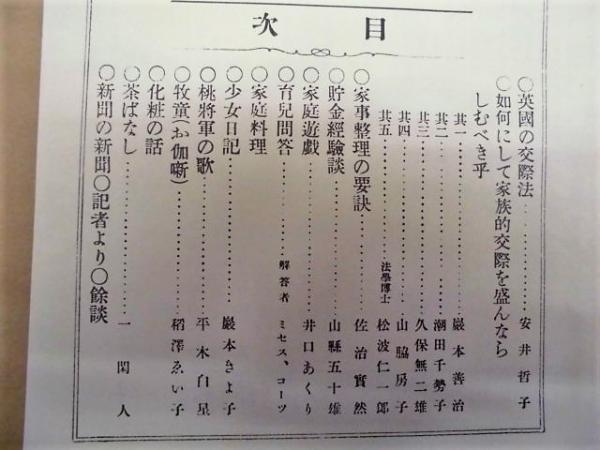 目次
○英國の交際法‥‥‥‥‥‥安井哲子
○如何にして家族的交際を盛んなら
しむべき乎
其一‥‥‥‥‥‥巖本善治
其二‥‥‥‥‥‥潮田千勢子
其三‥‥‥‥‥‥久保無二雄
其四‥‥‥‥‥‥山脇房子
其五‥‥‥法學博士 松波仁一郎
○家事整理の要訣‥‥‥‥‥‥佐治實然
○貯金經驗談‥‥‥‥‥‥山縣五十雄
○家庭遊戯‥‥‥‥‥‥井口あくり
○育兒問答‥‥‥解答者 ミセス、コーツ
○家庭料理
○少女日記‥‥‥‥‥‥巖本きよ子
○桃將軍の歌‥‥‥‥‥‥平木白星
○牧童(お伽噺)‥‥‥‥‥‥稻澤ゑい子
○化粧の話
○茶ばなし‥‥‥‥‥‥一閑人
○新聞の新聞○記者より○餘談